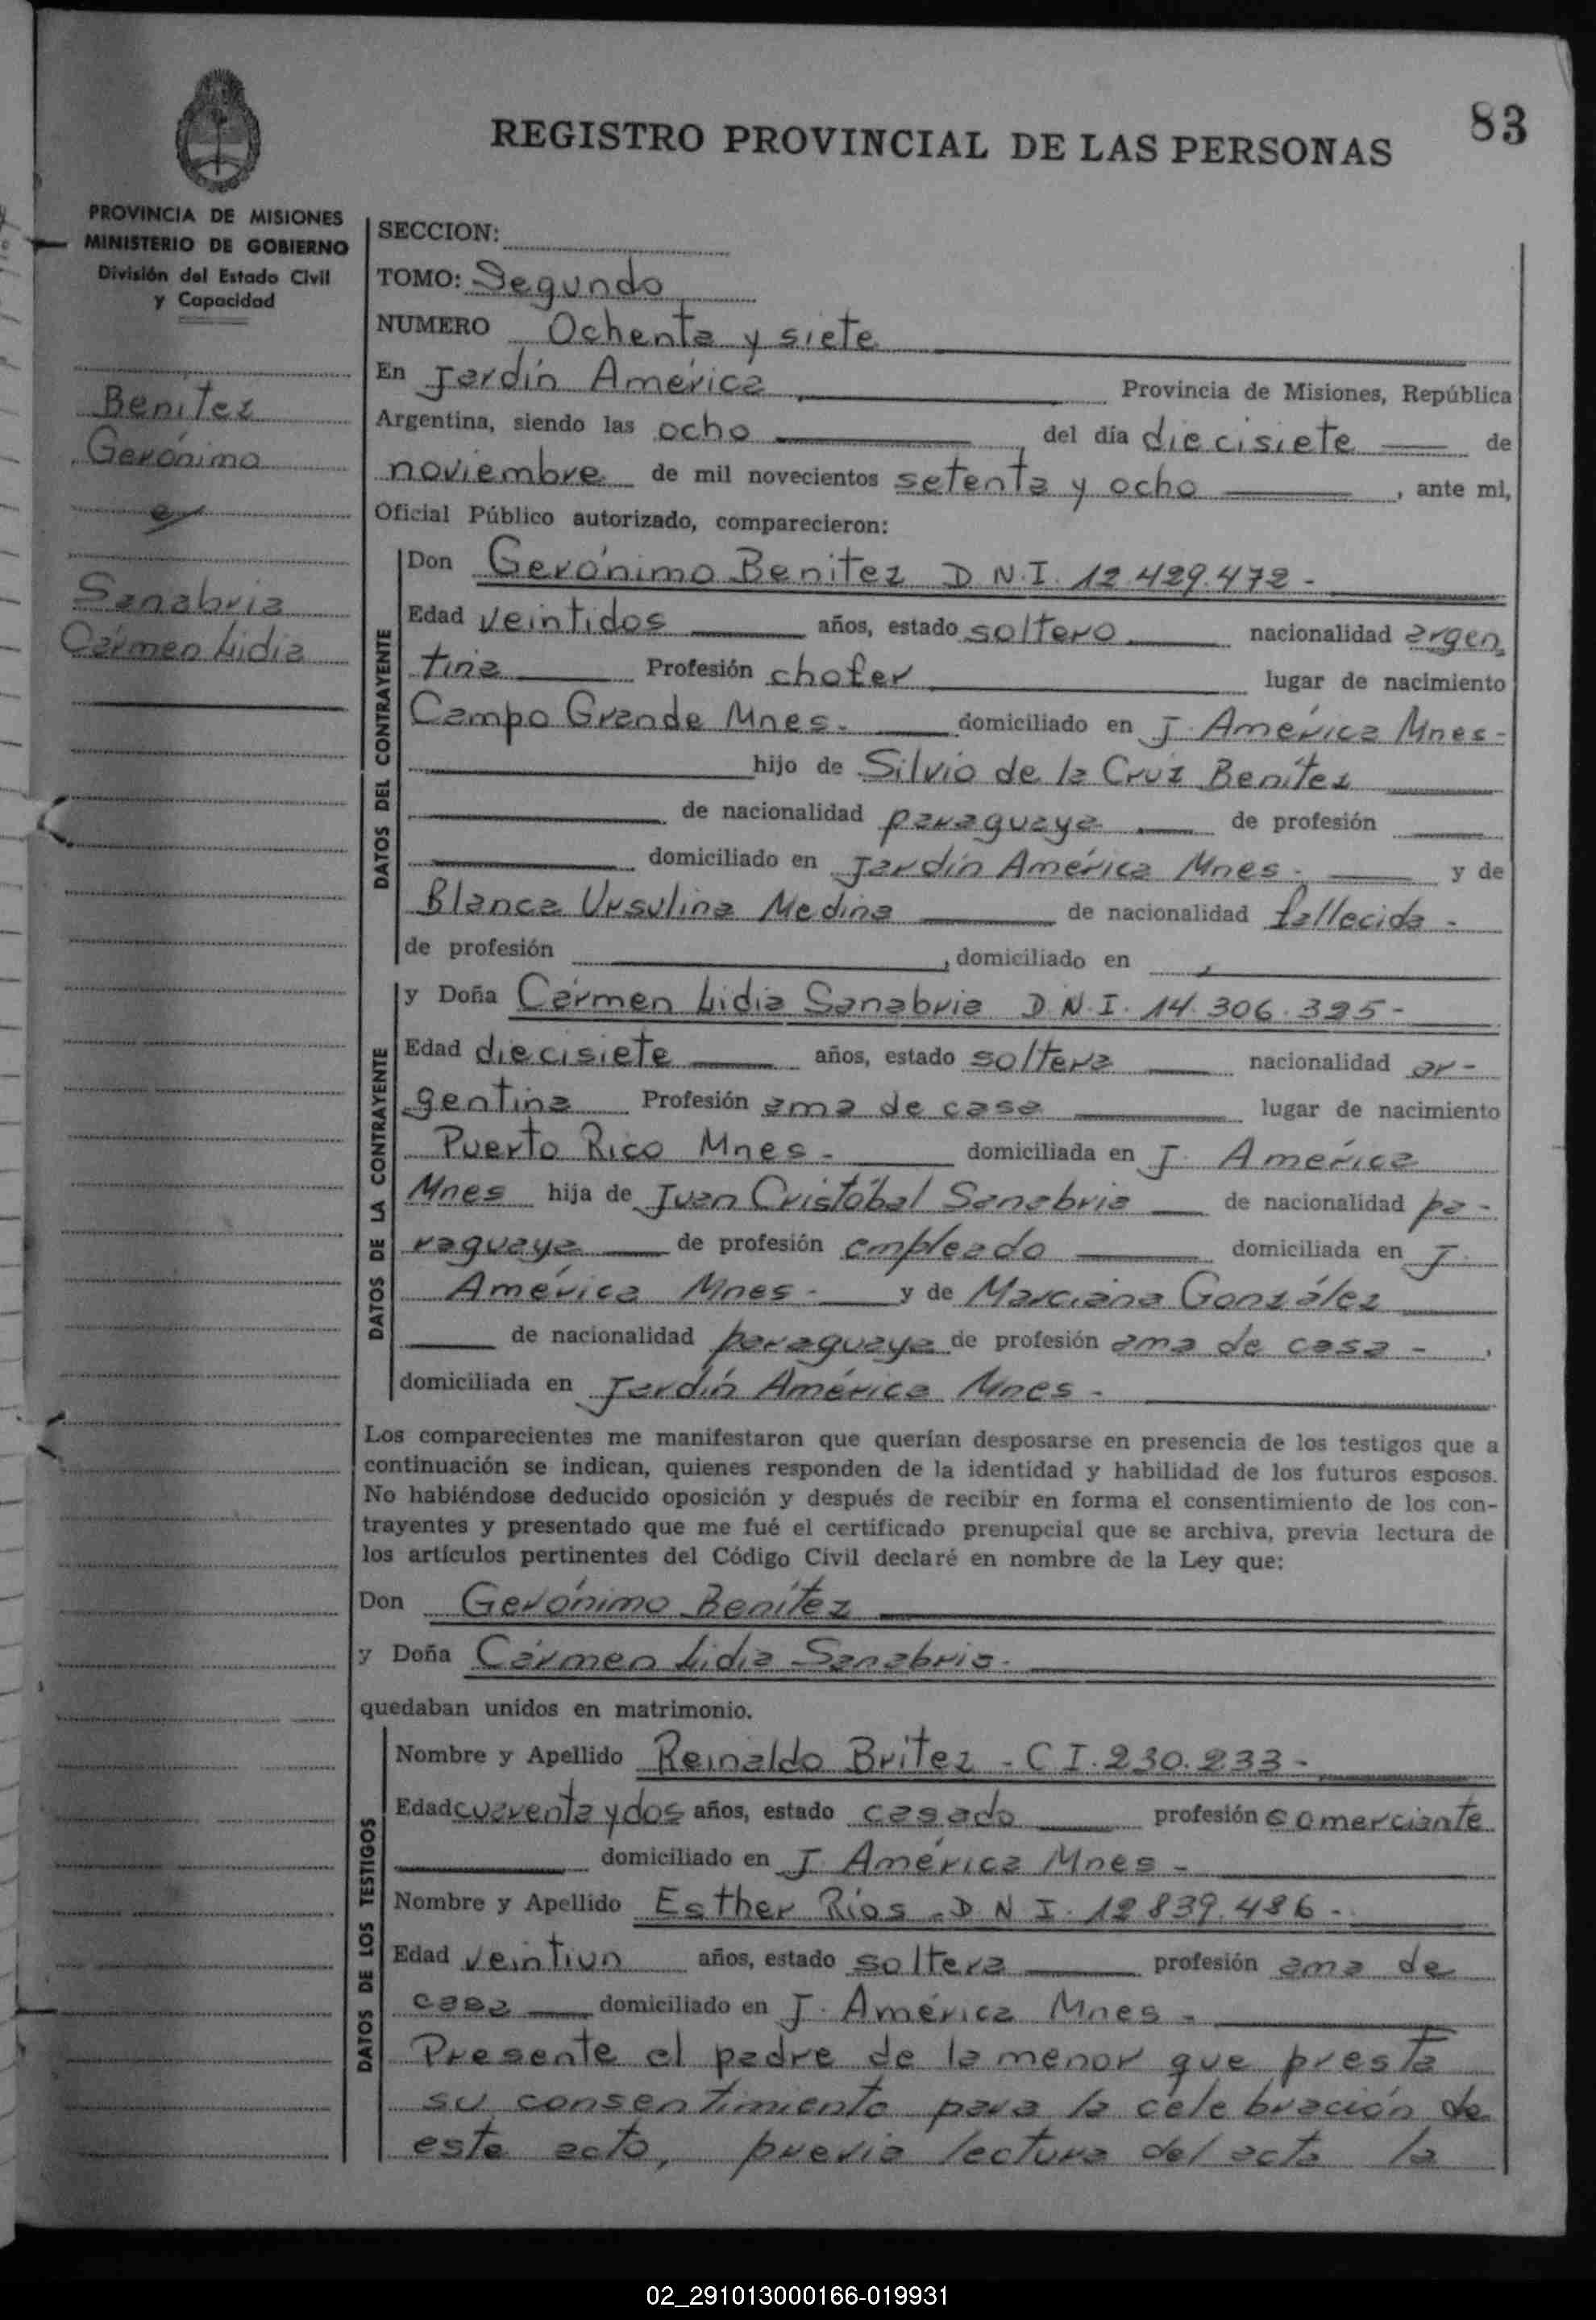 83
REGISTRO PROVINCIAL DE LAS PERSONAS
PROVINCIA DE MISIONES
MINISTERIO DE GOBIERNO
División del Estado Civil
y Capacidad
Benitez
Gerónimo
y
Sanabria
Cármen Lidia
SECCION:
TOMO: Segundo
NUMERO Ochenta y siete
En Jardín América Provincia de Misiones, República
Argentina, siendo las ocho del día diecisiete de
noviembre de mil novecientos setenta y ocho, ante mí,
Oficial Público autorizado, comparecieron:
DATOS DEL CONTRAYENTE
Don Gerónimo Benitez D.N.I. 12.429.472-
Edad veintidos años, estado soltero nacionalidad argen
tina Profesión chofer lugar de nacimiento
Campo Grande Mnes. domiciliado en J. América Mnes-
hijo de Silvio de la Cruz Benítez
de nacionalidad paraguaya de profesión
domiciliado en Jardín América Mnes- y de
Blanca Ursulina Medina de nacionalidad fallecida-
de profesión , domiciliado en
DATOS DE LA CONTRAYENTE
y Doña Cármen Lidia Sanabria D.N.I. 14.306.325-
Edad diecisiete años, estado soltera nacionalidad ar-
gentina Profesión ama de casa lugar de nacimiento
Puerto Rico Mnes- domiciliada en J. América
Mnes hija de Juan Cristóbal Sanabria de nacionalidad pa-
raguaya de profesión empleado domiciliada en J.
América Mnes- y de Marciana González
de nacionalidad paraguaya de profesión ama de casa- ,
domiciliada en Jardín América Mnes-
Los comparecientes me manifestaron que querían desposarse en presencia de los testigos que a
continuación se indican, quienes responden de la identidad y habilidad de los futuros esposos.
No habiéndose deducido oposición y después de recibir en forma el consentimiento de los con-
trayentes y presentado que me fué el certificado prenupcial que se archiva, previa lectura de
los artículos pertinentes del Código Civil declaré en nombre de la Ley que:
Don Gerónimo Benítez
y Doña Cármen Lidia Sanabria-
quedaban unidos en matrimonio.
DATOS DE LOS TESTIGOS
Nombre y Apellido Reinaldo Britez - C I. 230.233-
Edad cuarenta y dos años, estado casado profesión comerciante
domiciliado en J. América Mnes-
Nombre y Apellido Esther Ríos - D N I. 12 839.486-
Edad veintiun años, estado soltera profesión ama de
casa domiciliado en J. América Mnes-
Presente el padre de la menor que presta
su consentimiento para la celebración de
este acto, previa lectura del acta la
02_291013000166-019931